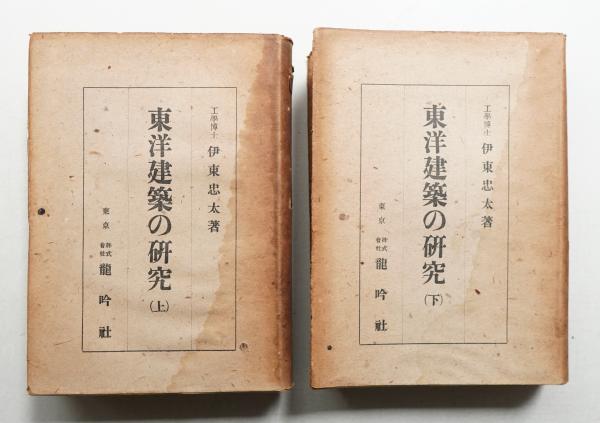 工學博士 伊東忠太著
東洋建築の研究(上)
東京 株式會社 龍吟社
工學博士 伊東忠太著
東洋建築の研究(下)
東京 株式會社 龍吟社